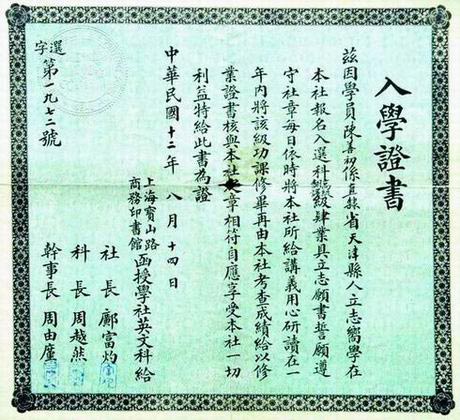 入學證書
茲因學員陳善初係直隸省天津縣人立志嚮學在
本社報名入選科級肄業具立志願書誓願遵
守社章每日依時將本社所給講義用心研讀在一
年內將該級功課修畢再由本社考查成績給以修
業證書核與本社章相符自應享受本社一切
利益特給此書為證
中華民國十二年八月十四日
上海寶山路
商務印書館
函授學社英文科給
社長鄺富灼
科長周越然
幹事長周由廑
選字第一九七二號